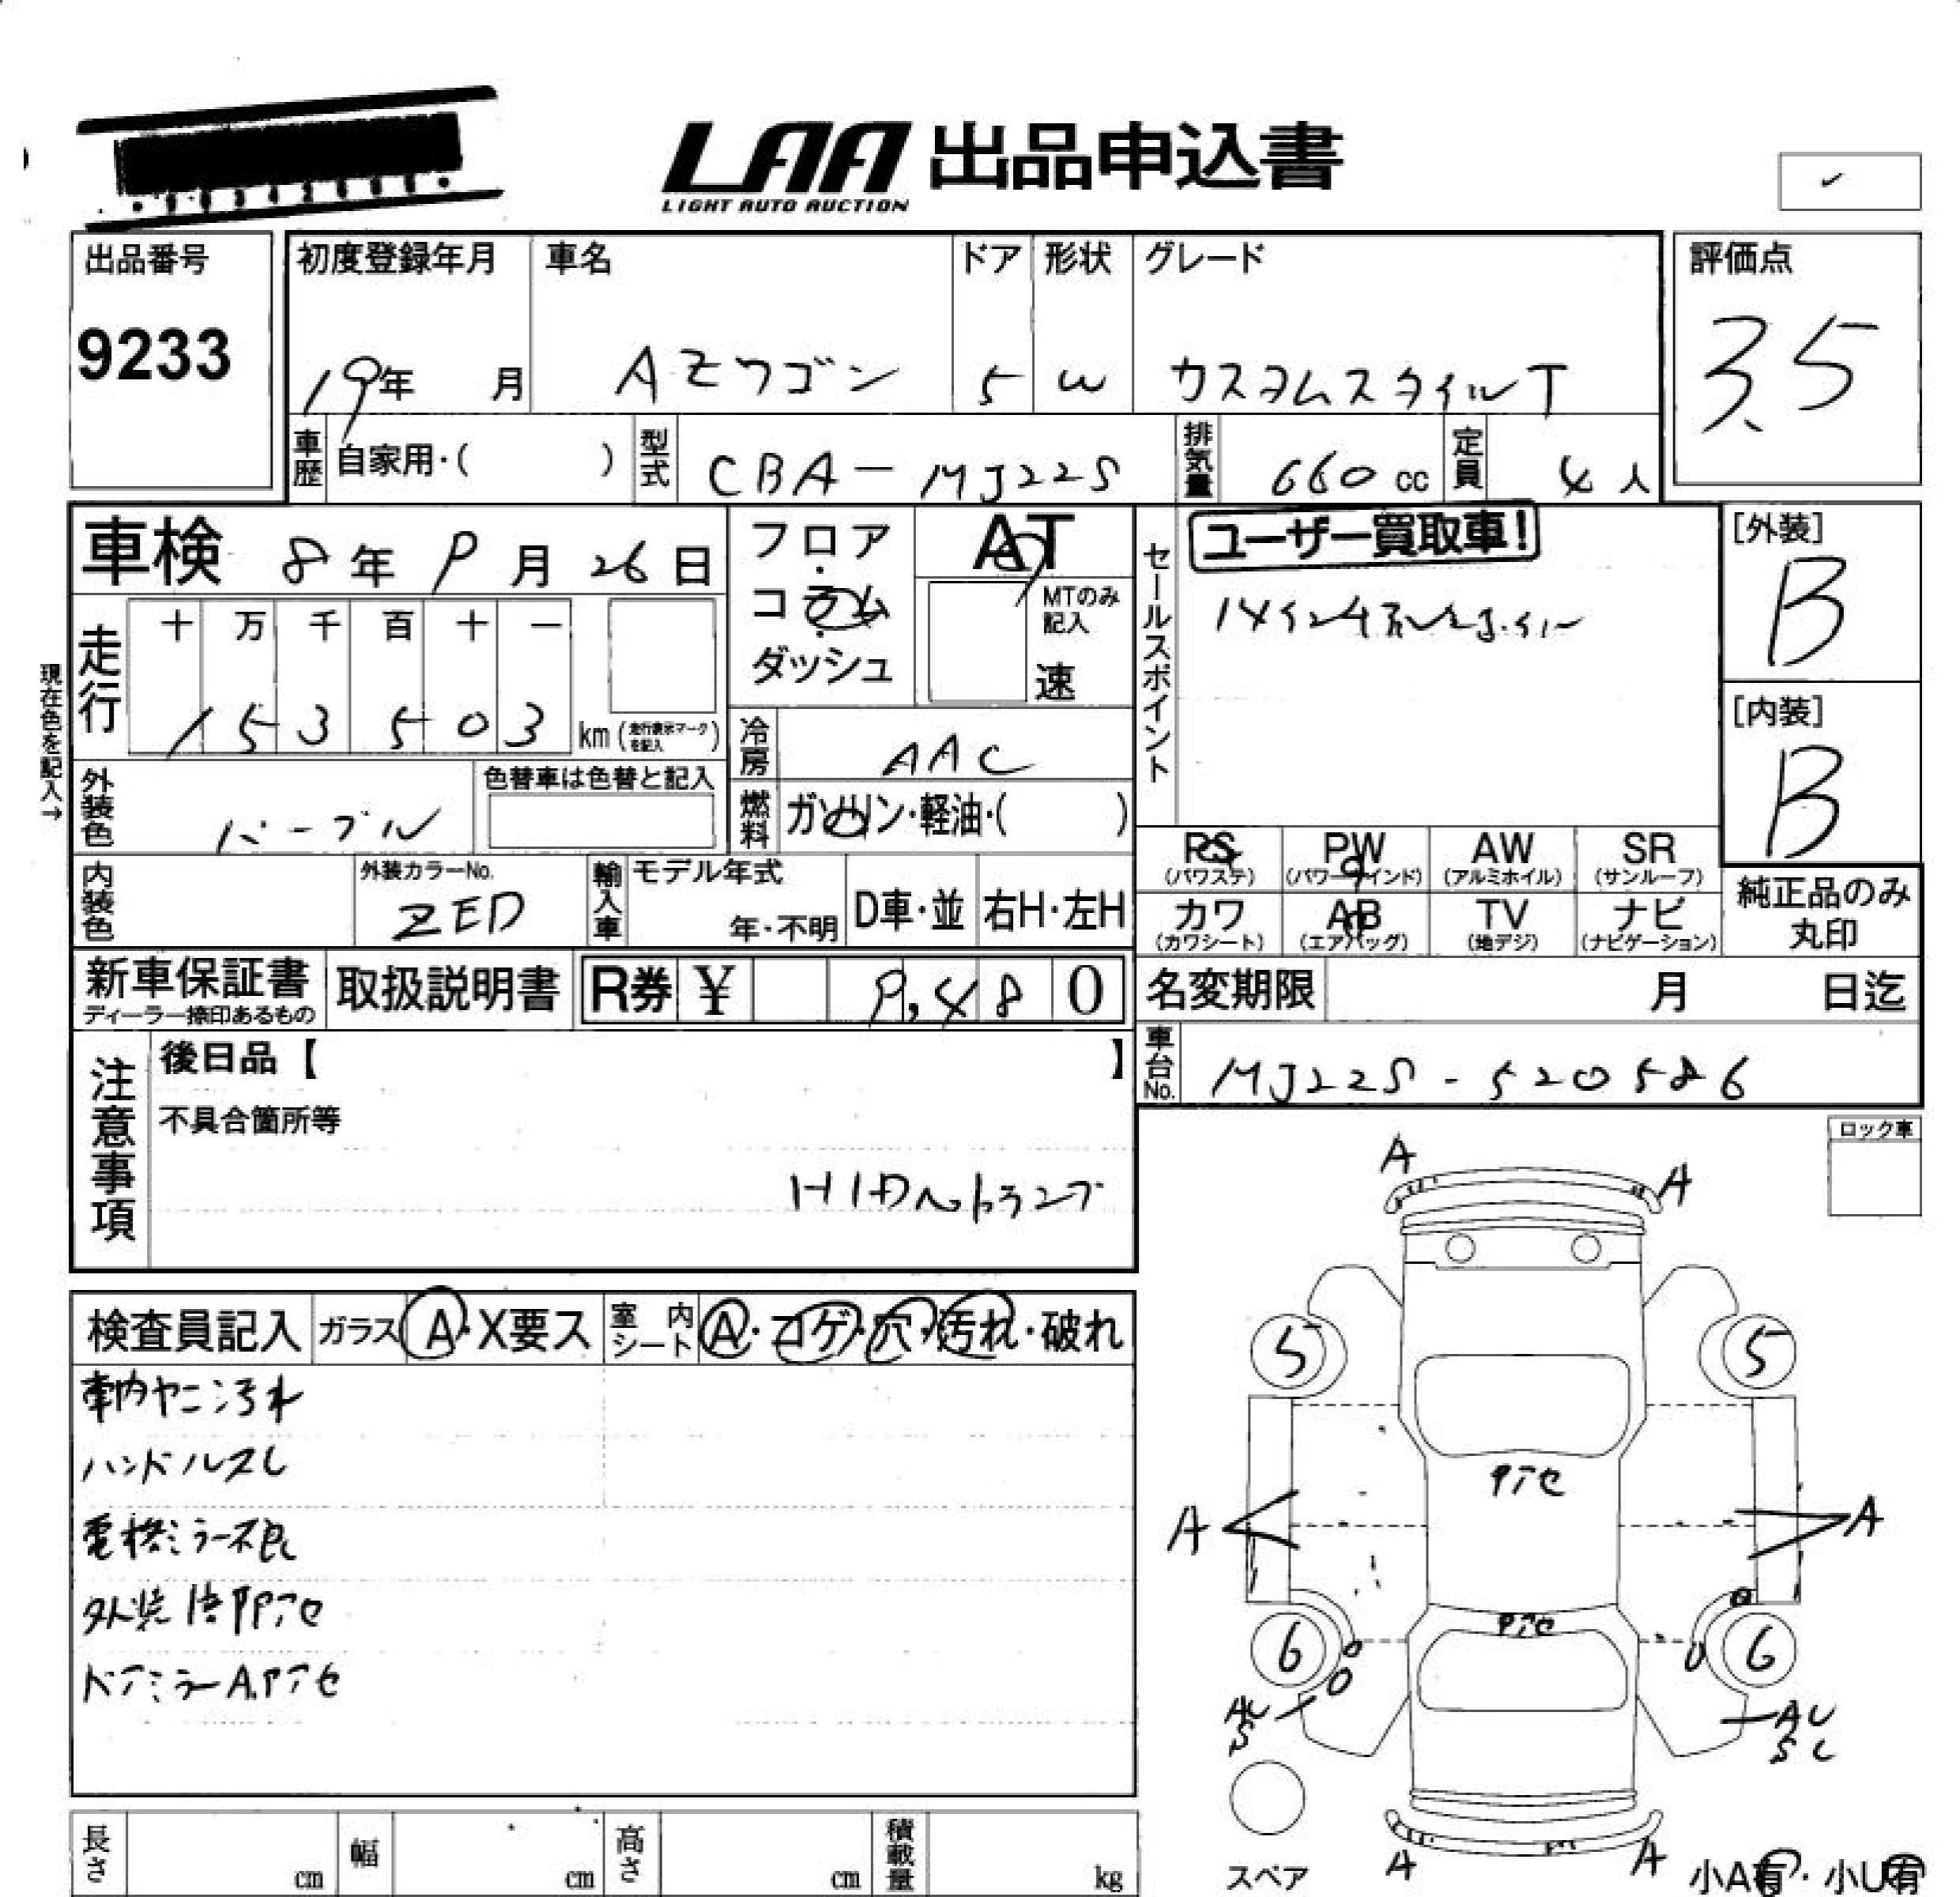 LAA 出品申込書
LIGHT AUTO AUCTION
出品番号
9233
初度登録年月
19年 月
車名
AZワゴン
ドア
5
形状
W
グレード
カスタムスタイルT
評価点
3.5
車歴 自家用・( )
型式 CBA-MJ22S
排気量 660 cc
定員 4 人
車検 8 年 9 月 26 日
フロア・コラム・ダッシュ
AT
MTのみ記入
速
セールスポイント
ユーザー買取車!
[外装]
B
[内装]
B
現在色を記入→
走行
十 万 千 百 十 一
1 5 3 5 0 3 km (走行表示マークを記入)
冷房 AAC
燃料 ガソリン・軽油・( )
外装色 パープル
色替車は色替と記入
内装色
外装カラーNo.
ZED
輸入車
モデル年式
年・不明
D車・並
右H・左H
PS (パワステ)
PW (パワーウインド)
AW (アルミホイル)
SR (サンルーフ)
カワ (カワシート)
AB (エアバッグ)
TV (地デジ)
ナビ (ナビゲーション)
純正品のみ丸印
新車保証書
ディーラー捺印あるもの
取扱説明書
R券 ¥ 9,480
名変期限 月 日迄
車台No. MJ22S-520586
注意事項
後日品【 】
不具合箇所等
ロック車
検査員記入
ガラス A・X要ス
室内シート A・コゲ・穴・汚れ・破れ
車内ヤニ汚れ
ハンドルスレ
電格ミラー不良
外装 Pアセ
ドアミラーA.Pアセ
A
A
5
5
Pアセ
A
A
Pアセ
6
6
AU
S
AU
S
A
A
スペア
小A有・小U有
長さ cm
幅 cm
高さ cm
積載量 kg